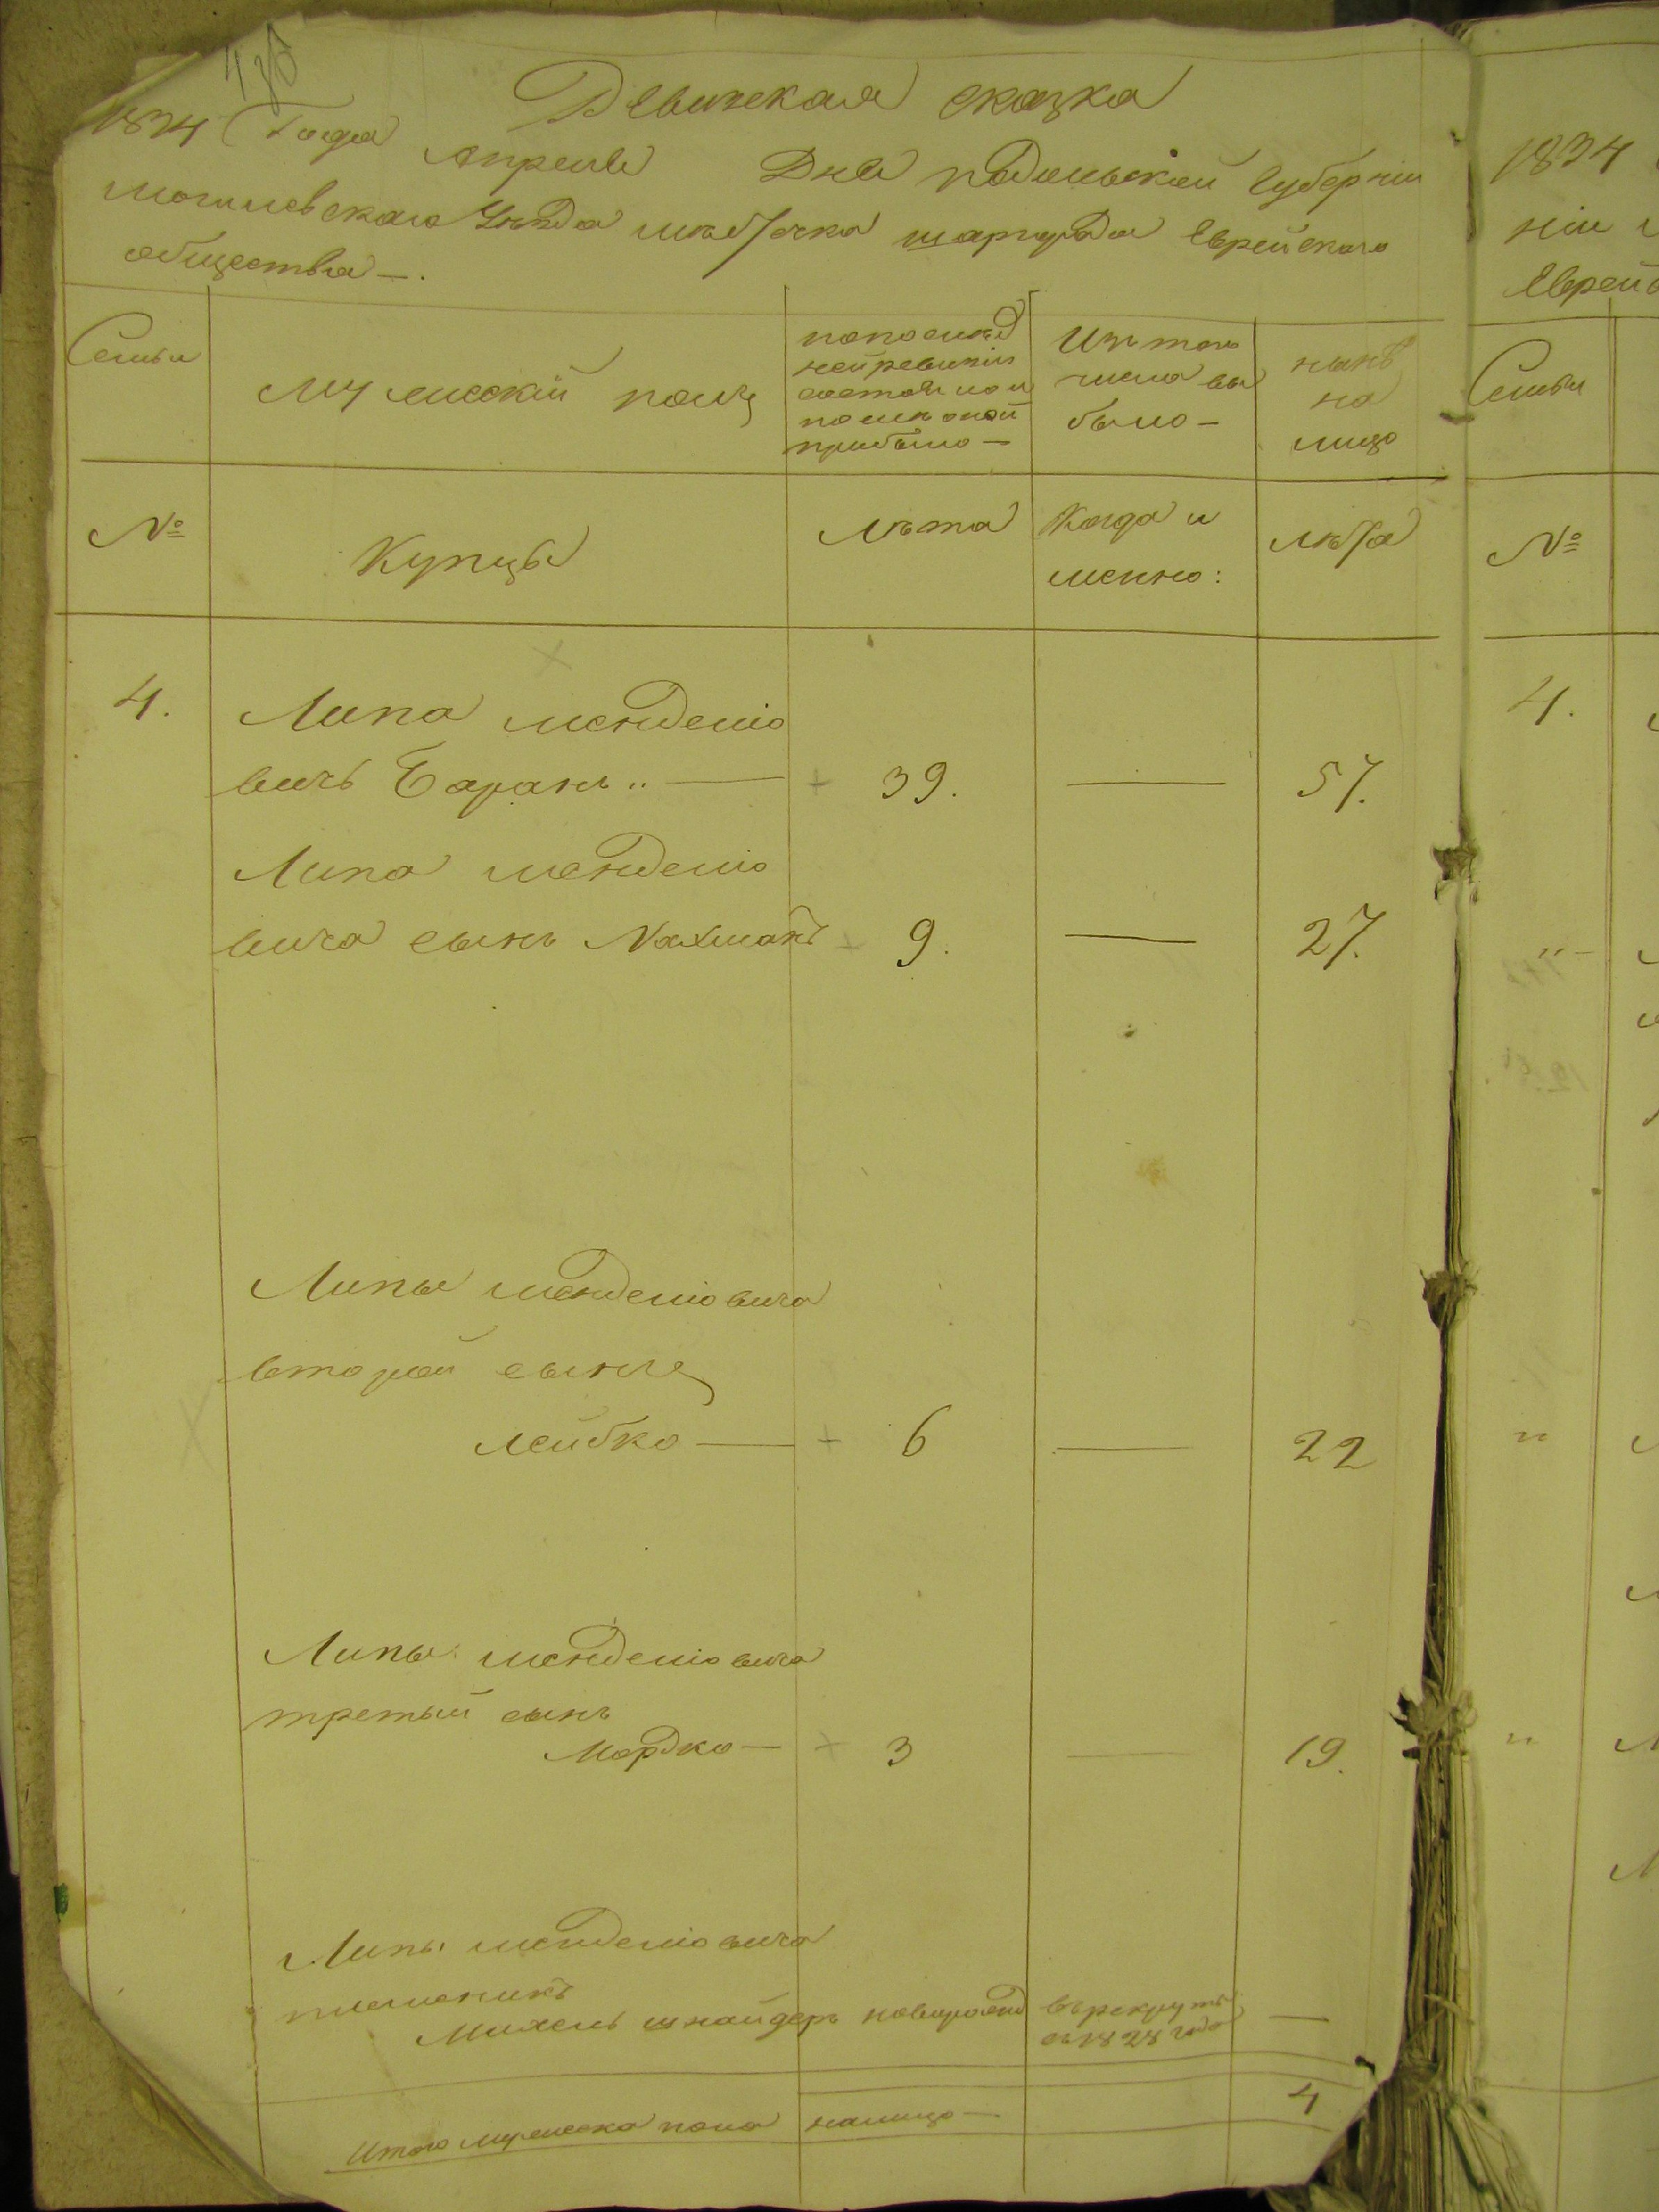 Ревижская сказка
1834 Года Апреля Дня подольской Губернии
могилевскаго Уезда местечка шаргрода Еврейскаго
общества —.
Семьи
мужескій полъ
по последней ревизіи состояло и после оной прибыло —
Изъ того числа выбыло —
ныне на лицо
№
Купцы
Лета
Когда и менно:
лета
4.
Липа менделіо
вичъ Баранъ .. — 39. — 57.
Липа менделіо
вича сынъ Нахманъ 9. — 27.
Липы менделіовича
второй сынъ
лейбко — 6 — 22
Липы менделіовича
третый сынъ
Мордко — 3 — 19.
Липы менделіовича
племеникъ
Михель шнайдеръ новорожд въ рекруты въ 1828 года —
Итого мужеска пола налицо — 4
1834
ніи
Еврей
Семьи
№
4.